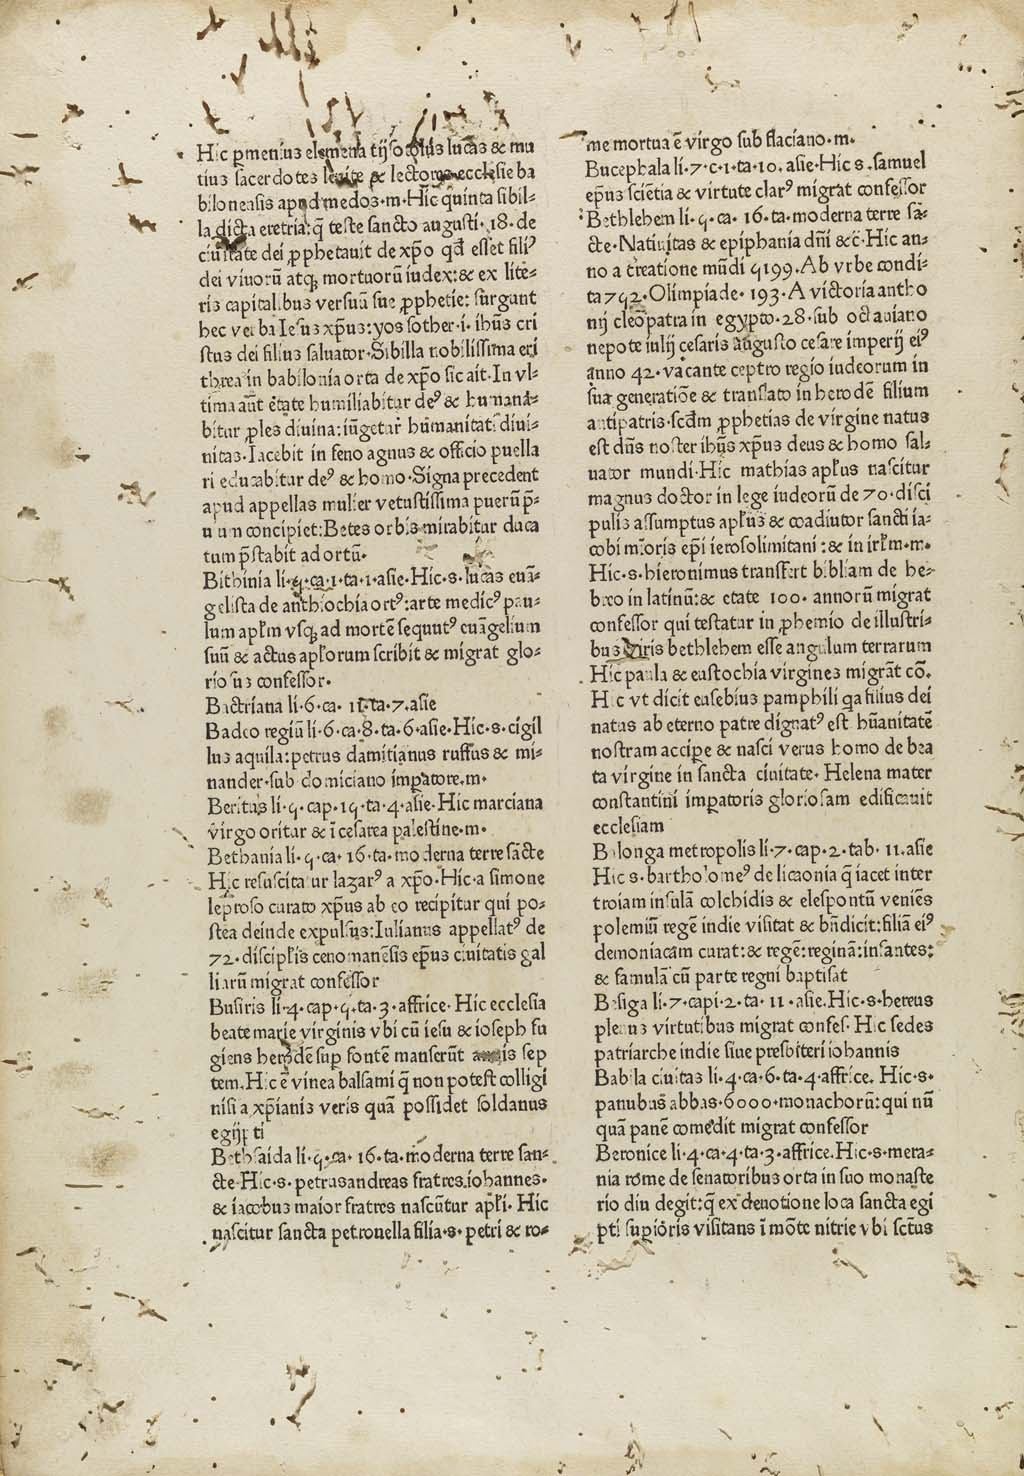 Hic pmenius elymena tijsocolus lucas & mu
tius sacerdotes leuite & lectores ecclesie ba
bilonensis apud medos·m·Hic quinta sibil-
la dicta eretria:q̄ teste sancto augusti·18·de
ciuitate dei ꝓphetauit de xp̄o qđ esset fili⁹
dei viuorū atqꝫ mortuorū iudex:& ex lite-
ris capitalibus versuū sue ꝓphetie: surgunt
hec verba Iesus xp̄us:yos sother·i·ihūs cri
stus dei filius saluator·Sibilla nobilissima eri
threa in babilonia orta de xp̄o sic ait·In vl-
tima aūt etate humiliabitur de⁹ & humanā-
bitur ꝓles diuina:iūgetur humanitati diui-
nitas·Iacebit in feno agnus & officio puella
ri educabitur de⁹ & homo·Signa precedent
apud appellas mulier vetustissima puerū p̄-
uium concipiet:Boetes orbis mirabitur duca
tum p̄stabit ad ortū·
Bithinia li·ꝗ·ca·1·ta·1·asie·Hic·s·lucas euā-
gelista de anthiochia ort⁹:arte medic⁹ pau-
lum apl̄m vsqꝫ ad mortē sequut⁹ euāgelium
suū & actus apl̄orum scribit & migrat glo-
riosus confessor·
Bactriana li·6·ca· 11·ta·7·asie
Badeo regiū li·6·ca·8·ta·6·asie·Hic·s·cigil
lus aquila:petrus damitianus ruffus & mi-
nander·sub domiciano impatore·m·
Beritus li·ꝗ·cap·1ꝗ·ta·4·asie·Hic marciana
virgo oritur & ī cesarea palestine·m·
Bethania li·ꝗ·ca·16·ta·moderna terre sācte
Hic resuscitatur lazar⁹ a xp̄o·Hic·a simone
leproso curato xp̄us ab eo recipitur qui po-
stea deinde expulsus:Iulianus appellat⁹ de
72·discipl̄is cenomanēsis ep̄us ciuitatis gal
liarū migrat confessor
Busiris li·4·cap·ꝗ·ta·3·affrice·Hic ecclesia
beate marie virginis vbi cū iesu & ioseph fu
giens herodē sup fontē manserūt annis sep
tem·Hic ē vinea balsami q̄ non potest colligi
nisi a xp̄ianis veris quā possidet soldanus
egipti
Bethsaida li·ꝗ·ca·16·ta·moderna terre san-
cte·Hic·s·petrus andreas fratres.iohannes·
& iacobus maior fratres nascūtur apl̄i·Hic
nascitur sancta petronella filia·s·petri & ro-
me mortua ē virgo sub flaciano·m·
Bucephala li·7·c·1·ta·10·asie·Hic s·samuel
ep̄us sciētia & virtute clar⁹ migrat confessor
Bethlehem li·ꝗ·ca·16·ta·moderna terre sā-
cte·Natiuitas & epiphania dn̄i &c̄·Hic an-
no a creatione mūdi ꝗ199·Ab vrbe condi-
ta 7ꝗ2·Olimpiade·193·A victoria antho
nij cleopatra in egypto·28·sub octauiano
nepote iulij cesaris augusto cesare imperij ei⁹
anno 42·vacante ceptro regio iudeorum in
sua generatiōe & translato in herodē filium
antipatris·scdm ꝓphetias de virgine natus
est dn̄s noster ihūs xp̄us deus & homo sal-
uator mundi·Hic mathias apl̄us nascitur
magnus doctor in lege iudeorū de 70·disci
pulis assumptus apl̄us & coadiutor sancti ia-
cobi mīoris ep̄i ierosolimitani:& in irl̄m·m·
Hic·s·hieronimus transfert bibliam de he-
breo in latinū:& etate 100·annorū migrat
confessor qui testatur in ꝓhemio de illustri-
bus viris bethlehem esse angulum terrarum
Hic paula & eustochia virgines migrāt cō·
Hic vt dicit eusebius pamphili qa filius dei
natus ab eterno patre dignat⁹ est hūanitatē
nostram accipe & nasci verus homo de bea
ta virgine in sancta ciuitate·Helena mater
constantini impatoris gloriosam edificauit
ecclesiam
Balonga metropolis li·7·cap·2·tab·11·asie
Hic s·bartholome⁹ de licaonia q̄ iacet inter
troiam insulā colchidis & elespontū veniēs
polemiū regē indie visitat & bn̄dicit:filiā ei⁹
demoniacam curat:& regē:reginā:infantes:
& famulā cū parte regni baptisat
Besiga li·7·capi·2·ta·11·asie·Hic·s·hereus
plenus virtutibus migrat confes·Hic sedes
patriarche indie siue presbiteri iohannis
Babila ciuitas li·4·ca·6·ta·4·affrice·Hic·s·
panubus abbas·6000·monachorū:qui nū
quā panē comedit migrat confessor
Beronice li·4·ca·4·ta·3·affrice·Hic·s·mera-
nia rome de senatoribus orta in suo monaste
rio diu degit:q̄ ex deuotione loca sancta egi
pti supioris visitans ī mōte nitrie vbi sctus